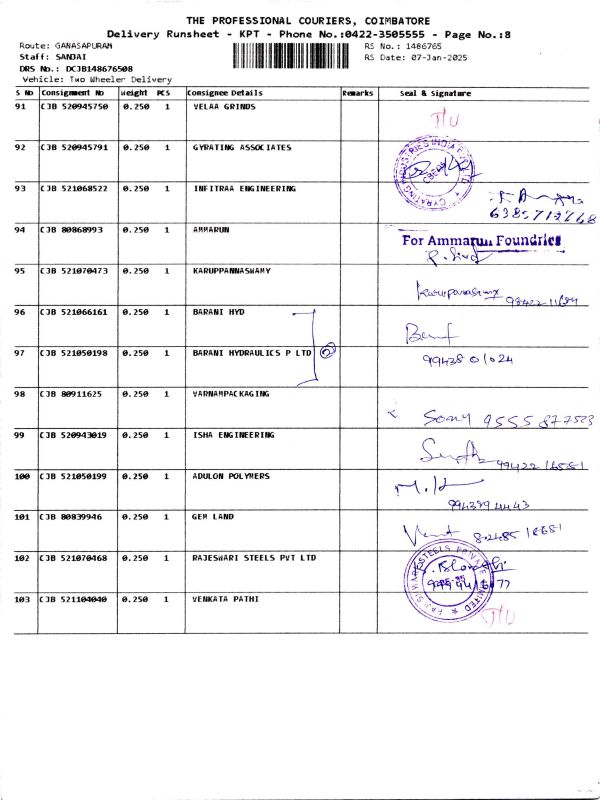 THE PROFESSIONAL COURIERS, COIMBATORE
Delivery Runsheet - KPT - Phone No.:0422-3505555 - Page No.:8
Route: GANASAPURAM RS No.: 1486765
Staff: SANJAI RS Date: 07-Jan-2025
DRS No.: DCJB148676508
Vehicle: Two Wheeler Delivery
S No Consignment No Weight PCS Consignee Details Remarks Seal & Signature
91 CJB 520945750 0.250 1 VELAA GRINDS
92 CJB 520945791 0.250 1 GYRATING ASSOCIATES
93 CJB 521068522 0.250 1 INFITRAA ENGINEERING
94 CJB 80868993 0.250 1 AMMARUN For Ammarun Foundries
95 CJB 521070473 0.250 1 KARUPPANNASWAMY
96 CJB 521066161 0.250 1 BARANI HYD
97 CJB 521050198 0.250 1 BARANI HYDRAULICS P LTD 2 9943801024
98 CJB 80911625 0.250 1 VARNAMPACKAGING 9555877523
99 CJB 520943019 0.250 1 ISHA ENGINEERING
100 CJB 521050199 0.250 1 ADULON POLYMERS
101 CJB 80839946 0.250 1 GEM LAND
102 CJB 521070468 0.250 1 RAJESWARI STEELS PVT LTD RAJESWARI STEELS PRIVATE LIMITED
103 CJB 521104040 0.250 1 VENKATA PATHI